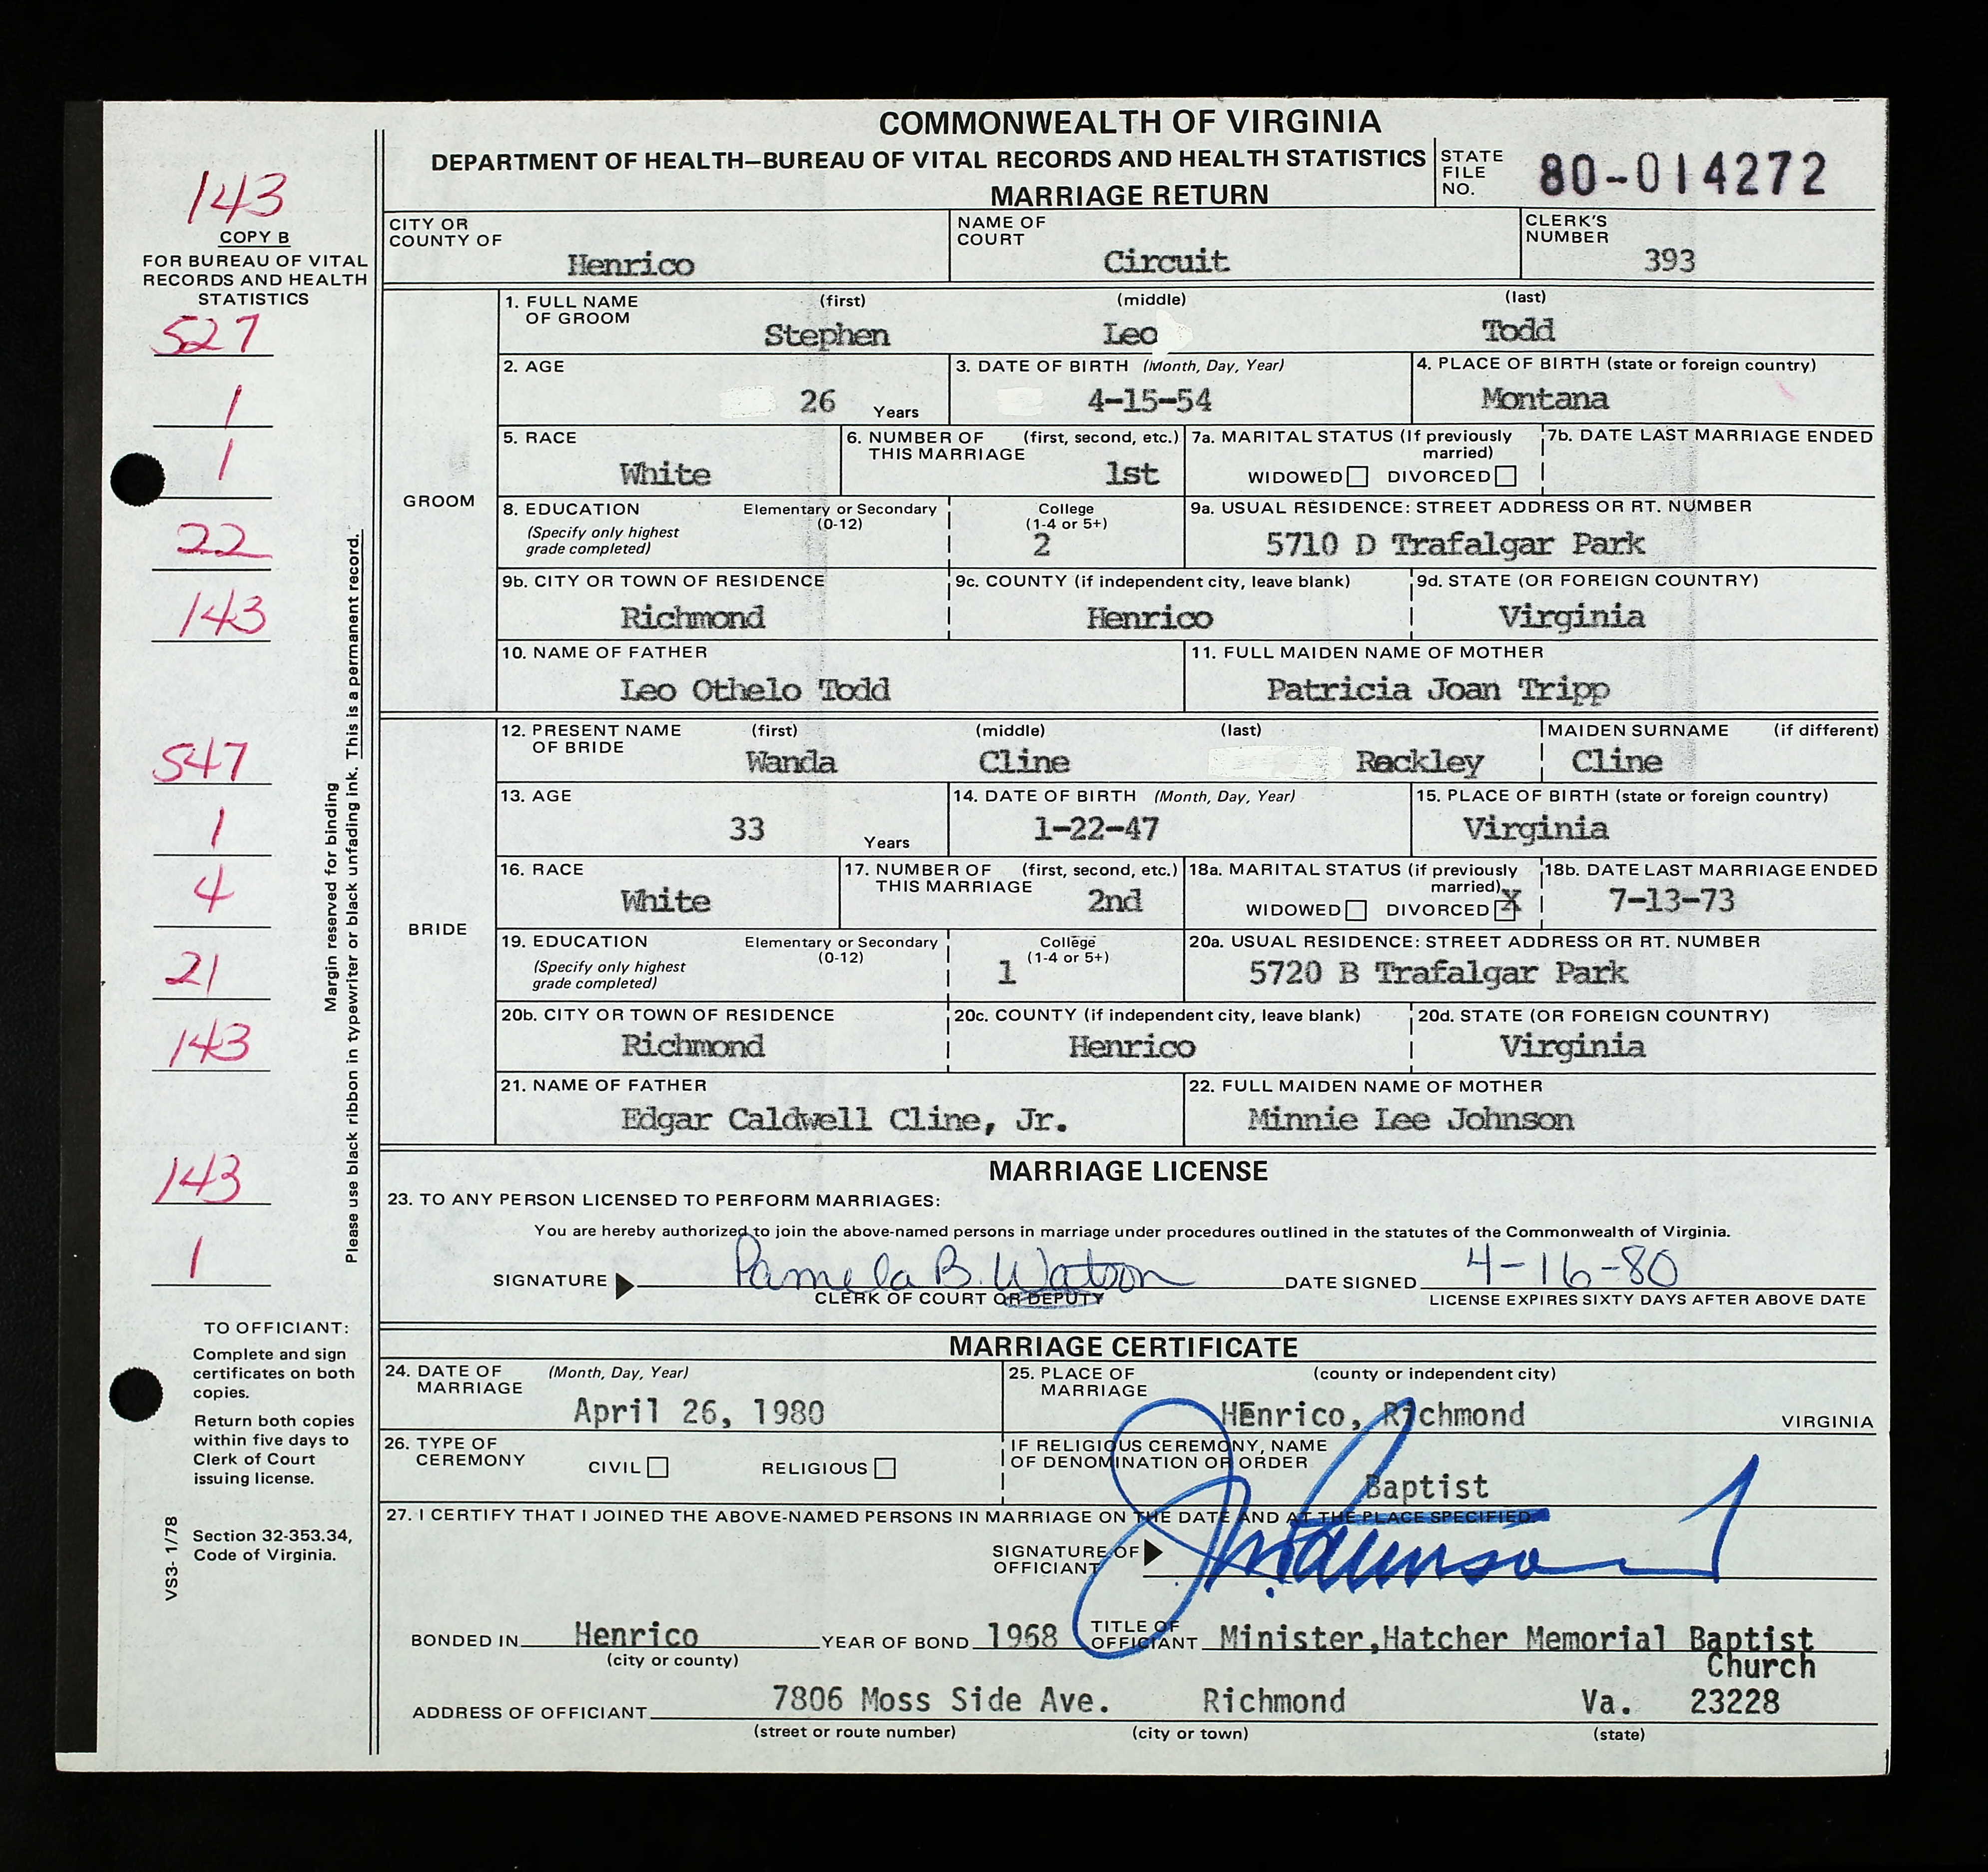 COMMONWEALTH OF VIRGINIA
DEPARTMENT OF HEALTH—BUREAU OF VITAL RECORDS AND HEALTH STATISTICS
MARRIAGE RETURN
STATE FILE NO. 80-014272
143
COPY B
FOR BUREAU OF VITAL
RECORDS AND HEALTH
STATISTICS
527
1
1
22
143
547
1
4
21
143
143
1
Margin reserved for binding
Please use black ribbon in typewriter or black unfading ink. This is a permanent record.
TO OFFICIANT:
Complete and sign
certificates on both
copies.
Return both copies
within five days to
Clerk of Court
issuing license.
Section 32-353.34,
Code of Virginia.
VS3- 1/78
CITY OR COUNTY OF Henrico
NAME OF COURT Circuit
CLERK'S NUMBER 393
GROOM
1. FULL NAME OF GROOM (first) Stephen (middle) Leo (last) Todd
2. AGE 26 Years
3. DATE OF BIRTH (Month, Day, Year) 4-15-54
4. PLACE OF BIRTH (state or foreign country) Montana
5. RACE White
6. NUMBER OF THIS MARRIAGE (first, second, etc.) 1st
7a. MARITAL STATUS (If previously married) WIDOWED DIVORCED
7b. DATE LAST MARRIAGE ENDED
8. EDUCATION (Specify only highest grade completed) Elementary or Secondary (0-12) College (1-4 or 5+) 2
9a. USUAL RESIDENCE: STREET ADDRESS OR RT. NUMBER 5710 D Trafalgar Park
9b. CITY OR TOWN OF RESIDENCE Richmond
9c. COUNTY (if independent city, leave blank) Henrico
9d. STATE (OR FOREIGN COUNTRY) Virginia
10. NAME OF FATHER Leo Othelo Todd
11. FULL MAIDEN NAME OF MOTHER Patricia Joan Tripp
BRIDE
12. PRESENT NAME OF BRIDE (first) Wanda (middle) Cline (last) Rackley MAIDEN SURNAME (if different) Cline
13. AGE 33 Years
14. DATE OF BIRTH (Month, Day, Year) 1-22-47
15. PLACE OF BIRTH (state or foreign country) Virginia
16. RACE White
17. NUMBER OF THIS MARRIAGE (first, second, etc.) 2nd
18a. MARITAL STATUS (if previously married) WIDOWED DIVORCED X
18b. DATE LAST MARRIAGE ENDED 7-13-73
19. EDUCATION (Specify only highest grade completed) Elementary or Secondary (0-12) College (1-4 or 5+) 1
20a. USUAL RESIDENCE: STREET ADDRESS OR RT. NUMBER 5720 B Trafalgar Park
20b. CITY OR TOWN OF RESIDENCE Richmond
20c. COUNTY (if independent city, leave blank) Henrico
20d. STATE (OR FOREIGN COUNTRY) Virginia
21. NAME OF FATHER Edgar Caldwell Cline, Jr.
22. FULL MAIDEN NAME OF MOTHER Minnie Lee Johnson
MARRIAGE LICENSE
23. TO ANY PERSON LICENSED TO PERFORM MARRIAGES:
You are hereby authorized to join the above-named persons in marriage under procedures outlined in the statutes of the Commonwealth of Virginia.
SIGNATURE Pamela B. Watson DATE SIGNED 4-16-80
CLERK OF COURT OR DEPUTY LICENSE EXPIRES SIXTY DAYS AFTER ABOVE DATE
MARRIAGE CERTIFICATE
24. DATE OF MARRIAGE (Month, Day, Year) April 26, 1980
25. PLACE OF MARRIAGE (county or independent city) HEnrico, Richmond VIRGINIA
26. TYPE OF CEREMONY CIVIL RELIGIOUS
IF RELIGIOUS CEREMONY, NAME OF DENOMINATION OR ORDER Baptist
27. I CERTIFY THAT I JOINED THE ABOVE-NAMED PERSONS IN MARRIAGE ON THE DATE AND AT THE PLACE SPECIFIED.
SIGNATURE OF OFFICIANT
BONDED IN Henrico YEAR OF BOND 1968 TITLE OF OFFICIANT Minister,Hatcher Memorial Baptist
Church
(city or county)
ADDRESS OF OFFICIANT 7806 Moss Side Ave. Richmond Va. 23228
(street or route number) (city or town) (state)